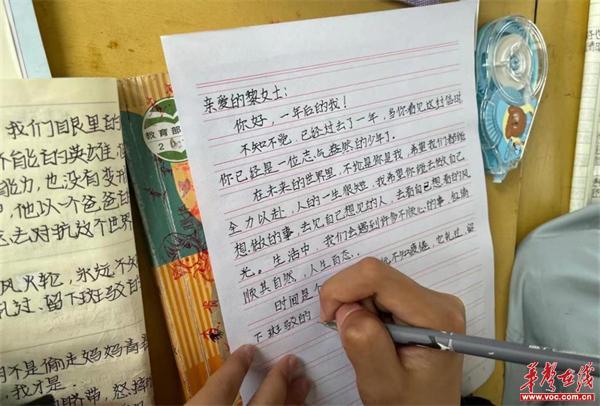 我们眼里的
不能言的英雄
能力,也没有变
他以一个爸爸
去对抗这个世界
风火轮,永远不
轧过,留下斑驳的
不是偷走妈妈高
我才是
脐带,怒
教育部
亲爱的黎女士:
你好,一年后的我!
不知不觉,已经过去了一年,当你看见这封信时
你已经是一位意气盎然的少年了。
在未来的世界里,不论是你是我,希望我们都能
全力以赴,人的一生很短,我希望你能去做自己
想做的事,去见自己想见的人,去看自己想看的风
光。生活中,我们会遇到许多不顺心的事,但请
顺其自然,人生自恋。
时间是个 不知疲倦,它轧过,留
下斑驳的
华声在线
www.voc.com.cn